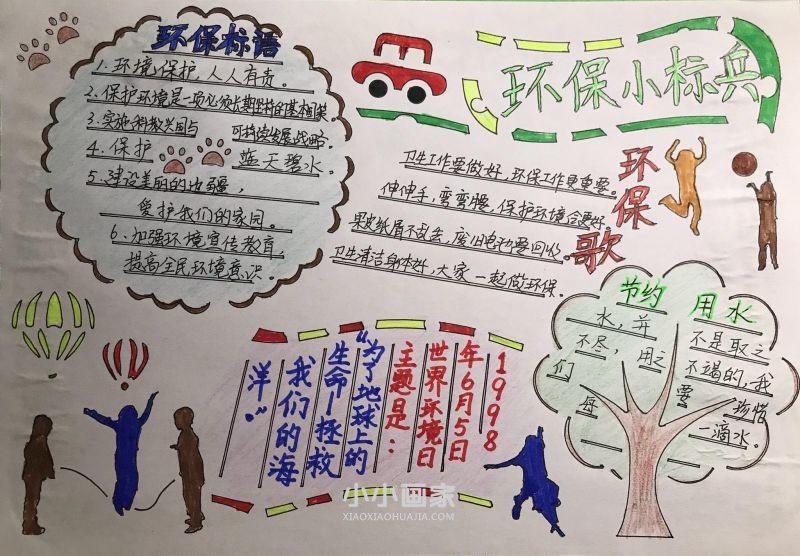 环保标语
1.环境保护,人人有责。
2.保护环境是一项必须长期坚持的基本国策
3.实施科教兴国与 可持续发展战略。
4.保护 蓝天碧水。
5.建设美丽的
爱护我们的家园。
6.加强环境宣传教育
提高全民环境意识。
环保小标兵
环保歌
卫生工作要做好,环保工作更重要。
伸伸手,弯弯腰,保护环境会更好
果皮纸屑不乱丢,废旧电池要回收。
卫生清洁身体好,大家一起做环保。
节约用水
水,并不是取之
不尽,用之不竭的,我
们要珍惜
每一滴水。
1998
年6月5日
世界环境日
主题是:
“为了地球上的
生命—拯救
我们的海
洋。”
小小画家
XIAOXIAOHUAJIA.COM